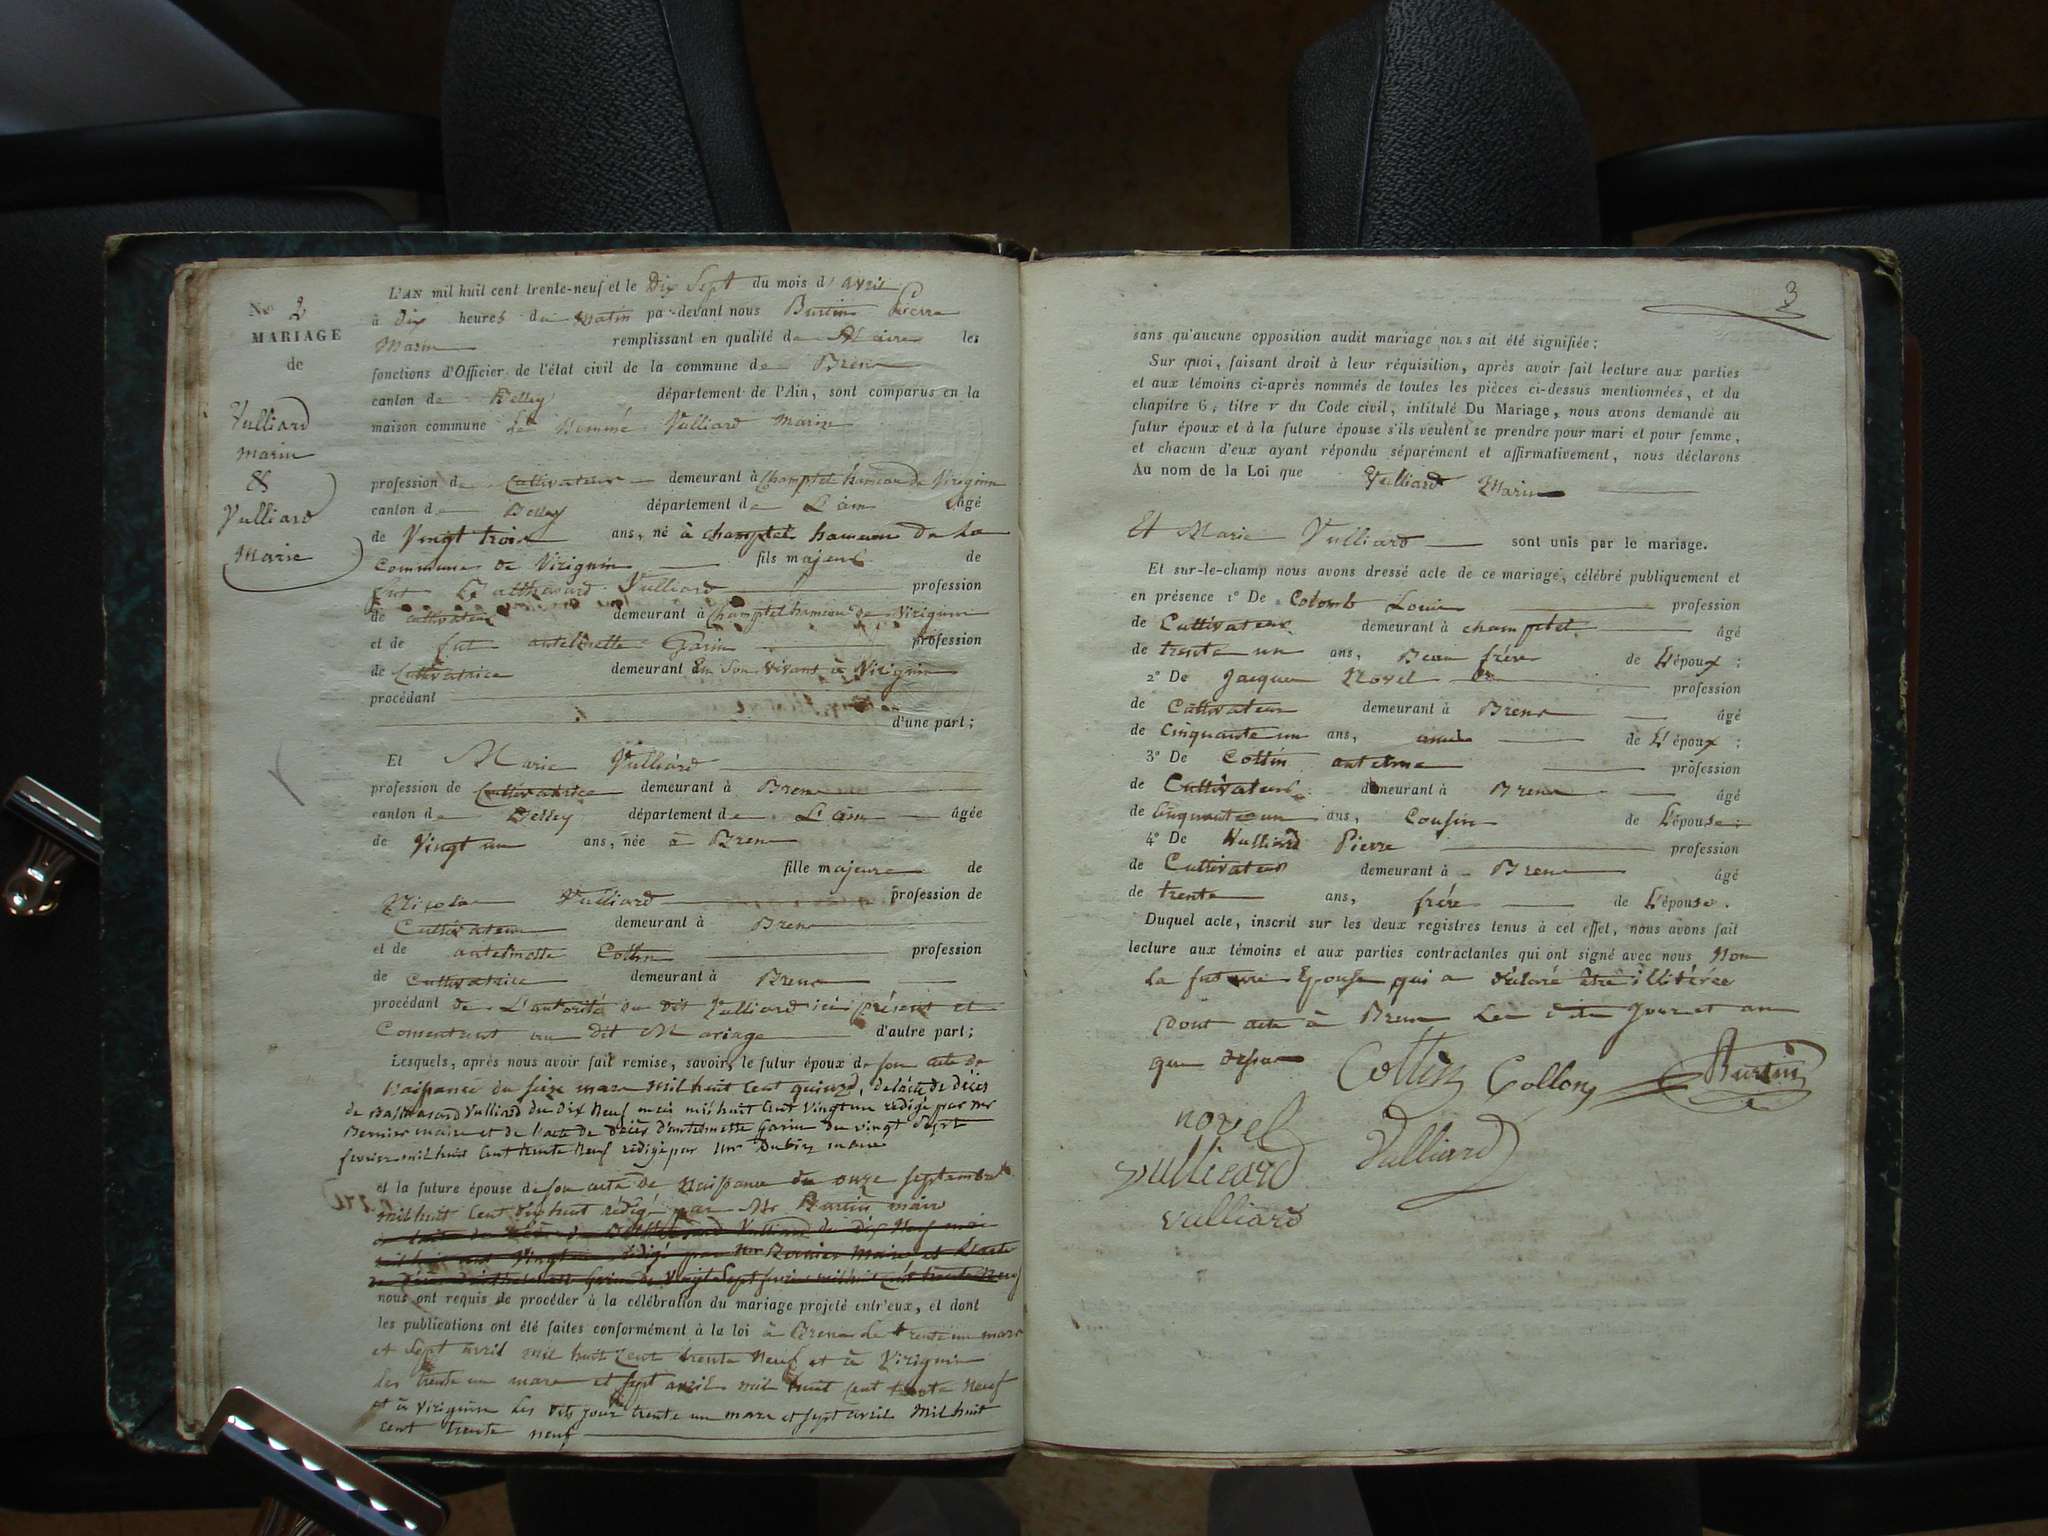 No 2
MARIAGE
de
Vulliard
marin
&
Vulliard
Marie
L'AN mil huit cent trente-neuf et le Dix Sept du mois d'avril
à Dix heures du Matin par-devant nous Burtin Pierre
Marin remplissant en qualité de Maire les
fonctions d'Officier de l'état civil de la commune de Brens
canton de Belley département de l'Ain, sont comparus en la
maison commune Le Nommé Vulliard Marin
profession de Cultivateur demeurant à Champtel hameau de Virignin
canton de Belley département de L'ain âgé
de Vingt trois ans, né à champtel hameau De La
Commune de Virignin fils majeur de
fut Balthasard Vulliard profession
de cultivateur demeurant à Champtel hameau de Virignin
et de fut antelmette Garin profession
de Cultivatrice demeurant En Son vivant à Virignin
procédant
d'une part;
Et Marie Vulliard
profession de Cultivatrice demeurant à Brens
canton de Belley département de L'ain âgée
de Vingt un ans, née à Brens
fille majeure de
Nicolas Vulliard profession de
Cultivateur demeurant à Brens
et de antelmette Cottin profession
de Cultivatrice demeurant à Brens
procédant de L'autorité du dit Vulliard ici présent et
Consentent au Dit Mariage d'autre part;
Lesquels, après nous avoir fait remise, savoir, le futur époux de son acte de
Naissance du seize mars mil huit cent quinze, de l'acte de Décès
de Balthasard Vulliard du Dix Neuf mai mil huit Cent Vingt un redigé par Mr
Bernier maire et de l'acte de Décès d'antelmette Garin du vingt Sept
fevrier mil huit Cent trente Neuf redigé par Mr Dubin maire
et la future épouse de son acte de Naissance du onze septembre
mil huit Cent Dix huit rédigé par Mr Burtin maire
de l'acte de Décès de Balthasard Vulliard du Dix Neuf mai
mil huit cent Vingt un rédigé par Mr Bernier Maire et l'acte
de Décès d'antelmette Garin du Vingt Sept fevrier mil huit Cent trente Neuf
nous ont requis de procéder à la célébration du mariage projeté entr'eux, et dont
les publications ont été faites conformément à la loi à Brens Le trente un mars
et Sept avril mil huit Cent trente Neuf et à Virignin
les trente un mars et sept avril mil huit Cent trente Neuf
et à Virignin Les Dits jour trente un mars et sept avril Mil huit
cent trente neuf
3
sans qu'aucune opposition audit mariage nous ait été signifiée;
Sur quoi, faisant droit à leur réquisition, après avoir fait lecture aux parties
et aux témoins ci-après nommés de toutes les pièces ci-dessus mentionnées, et du
chapitre 6, titre v du Code civil, intitulé Du Mariage, nous avons demandé au
futur époux et à la future épouse s'ils veulent se prendre pour mari et pour femme,
et chacun d'eux ayant répondu séparément et affirmativement, nous déclarons
Au nom de la Loi que Vulliard Marin
Et Marie Vulliard sont unis par le mariage.
Et sur-le-champ nous avons dressé acte de ce mariage, célébré publiquement et
en présence 1° De Colomb Louis profession
de Cultivateur demeurant à champtel âgé
de trente un ans, Beau frére de L'époux;
2° De Jacques Novel profession
de Cultivateur demeurant à Brens âgé
de Cinquante un ans, amis de L'époux;
3° De Cottin antelme profession
de Cultivateur demeurant à Brens âgé
de Cinquante un ans, Cousin de L'épouse;
4° De Vulliard Pierre profession
de Cultivateur demeurant à Brens âgé
de trente ans, frére de L'épouse.
Duquel acte, inscrit sur les deux registres tenus à cet effet, nous avons fait
lecture aux témoins et aux parties contractantes qui ont signé avec nous Non
La future Epouse qui a déclaré être illitérée
Dont acte à Brens Les dits Jour et an
que dessus Cottin Collon Burtin
novel
vullieard Vulliard
vulliard